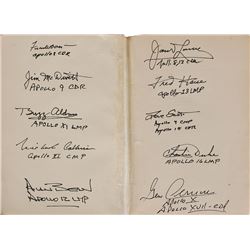 Apollo 8 CDR
Jim McDivitt
APOLLO 9 CDR
Buzz Aldrin
APOLLO XI LMP
Michael Collins
Apollo XI CMP
Alan Bean
APOLLO 12 LMP
James Lovell
Fred Haise
APOLLO 13 LMP
Dave Scott
Apollo 9 CMP
Apollo 15 CDR
Charles Duke
APOLLO 16 LMP
Gene Cernan
Apollo X
APOLLO XVII-CDR